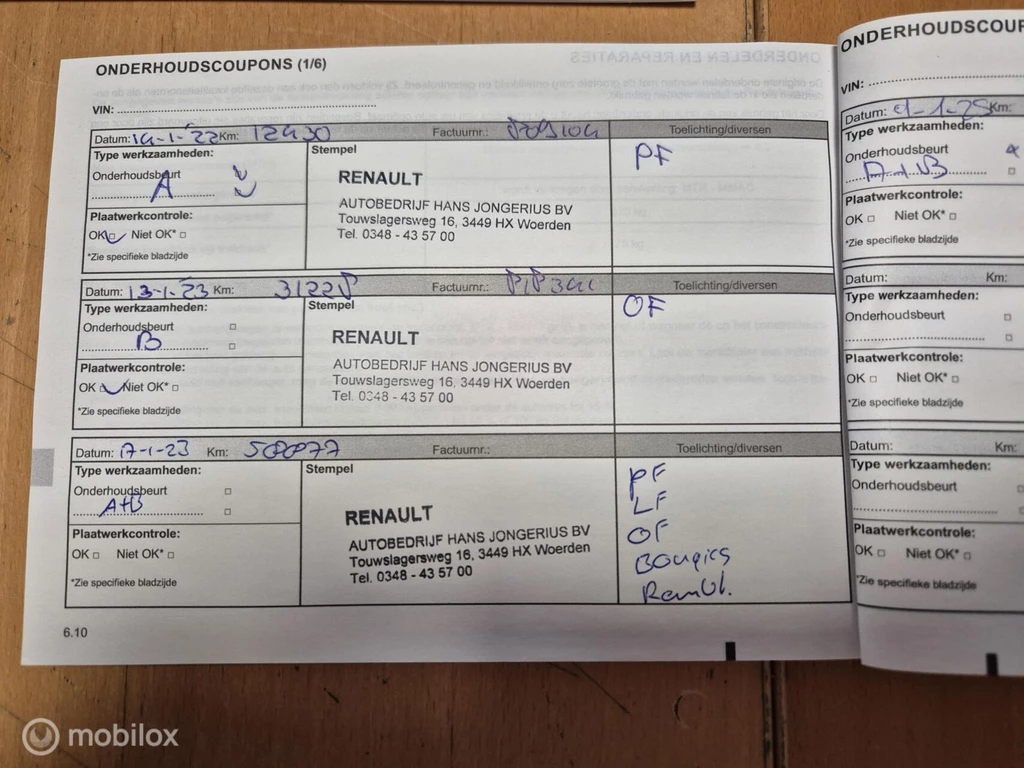 ONDERHOUDSCOUPONS (1/6)
VIN:
Datum: 14-1-22 Km: 12430 Factuurnr.: Toelichting/diversen
Type werkzaamheden: Stempel PF
Onderhoudsbeurt
A
RENAULT
AUTOBEDRIJF HANS JONGERIUS BV
Touwslagersweg 16, 3449 HX Woerden
Tel. 0348 - 43 57 00
Plaatwerkcontrole:
OK Niet OK*
*Zie specifieke bladzijde
Datum: 13-1-23 Km: Factuurnr.: Toelichting/diversen
Type werkzaamheden: Stempel OF
Onderhoudsbeurt
B
RENAULT
AUTOBEDRIJF HANS JONGERIUS BV
Touwslagersweg 16, 3449 HX Woerden
Tel. 0348 - 43 57 00
Plaatwerkcontrole:
OK Niet OK*
*Zie specifieke bladzijde
Datum: 17-1-23 Km: Factuurnr.: Toelichting/diversen
Type werkzaamheden: Stempel
Onderhoudsbeurt
A+B
RENAULT
AUTOBEDRIJF HANS JONGERIUS BV
Touwslagersweg 16, 3449 HX Woerden
Tel. 0348 - 43 57 00
PF
LF
OF
Bougies
Remvl.
Plaatwerkcontrole:
OK Niet OK*
*Zie specifieke bladzijde
6.10
ONDERHOUDSCOUP
VIN:
Datum: Km:
Type werkzaamheden:
Onderhoudsbeurt
A+B
Plaatwerkcontrole:
OK Niet OK*
*Zie specifieke bladzijde
Datum: Km:
Type werkzaamheden:
Onderhoudsbeurt
Plaatwerkcontrole:
OK Niet OK*
*Zie specifieke bladzijde
Datum: Km:
Type werkzaamheden:
Onderhoudsbeurt
Plaatwerkcontrole:
OK Niet OK*
*Zie specifieke bladzijde
mobilox